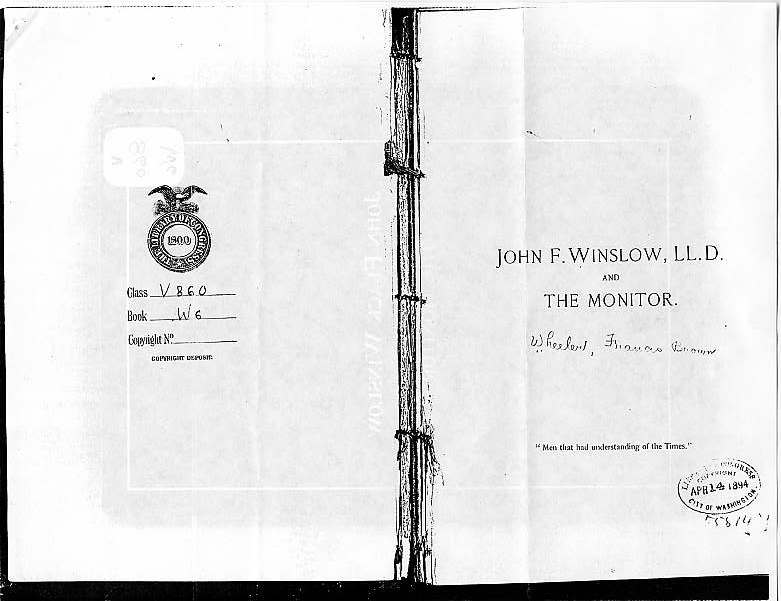 THE LIBRARY OF CONGRESS
1800
Class V860
Book .W6
Copyright Nº
COPYRIGHT DEPOSIT.
JOHN F. WINSLOW, LL.D.
AND
THE MONITOR.
Wheeler, Francis Brown
"Men that had understanding of the Times."
LIBRARY OF CONGRESS
COPYRIGHT
APR 14 1894
CITY OF WASHINGTON